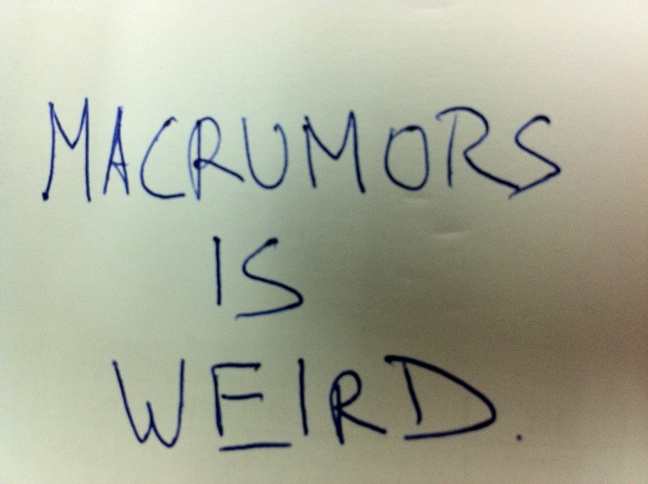 MACRUMORS
IS
WEIRD.